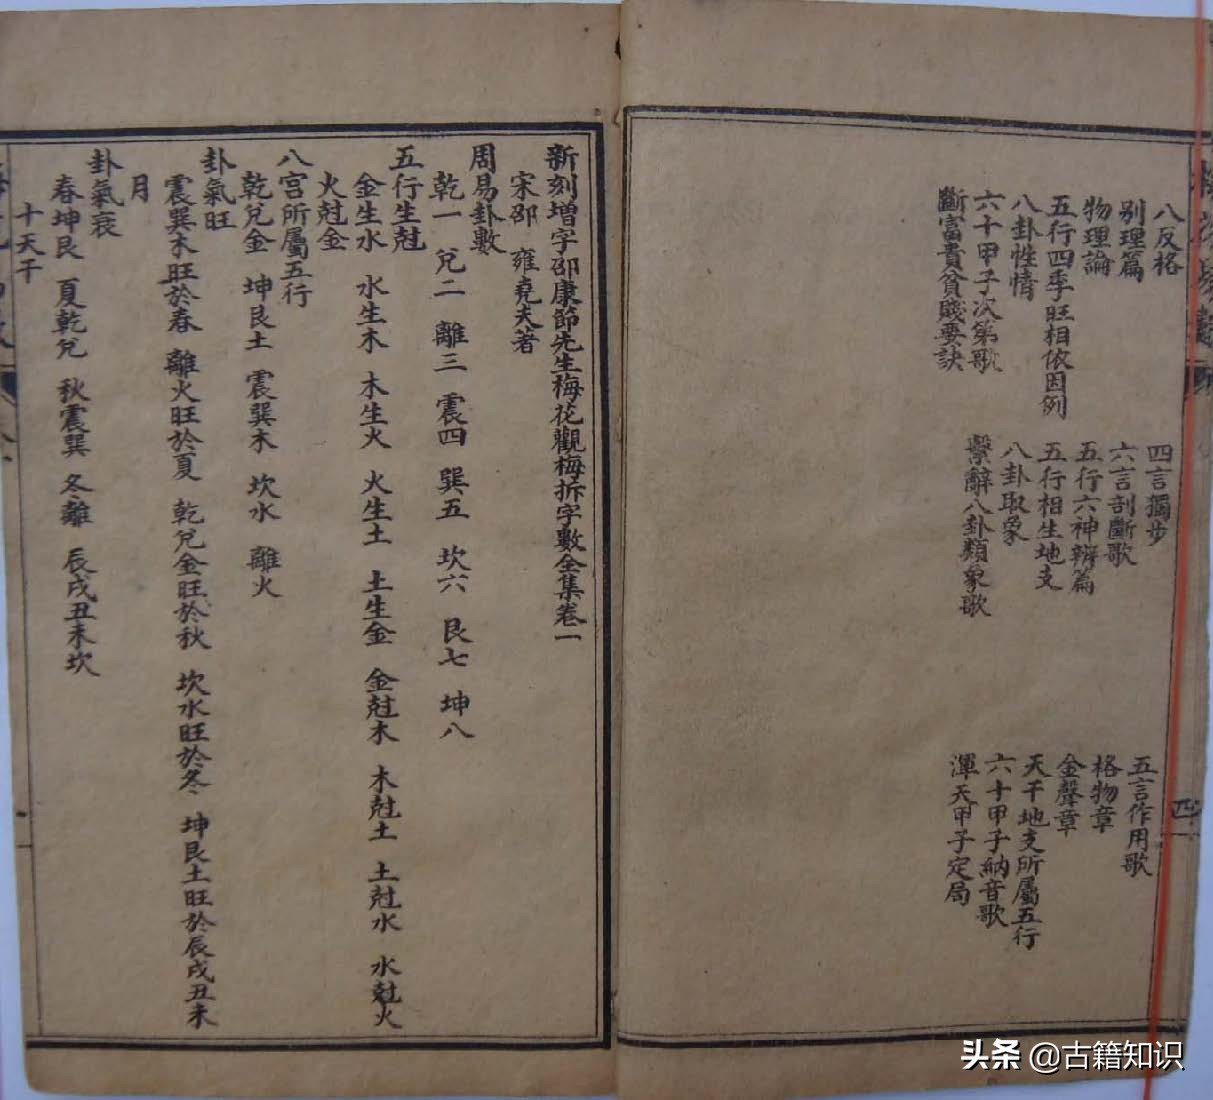 八反格
四言獨步
五言作用歌
别理篇
六言剖斷歌
格物章
物理論
五行六神辨篇
金聲章
五行四季旺相依因例
五行相生地支
天干地支所屬五行
八卦性情
八卦取象
六十甲子納音歌
六十甲子次第歌
繫辭八卦類象歌
渾天甲子定局
斷富貴貧賤要訣
四
新刻增字邵康節先生梅花觀梅拆字數全集卷一
宋邵 雍堯夫著
周易卦數
乾一 兌二 離三 震四 巽五 坎六 艮七 坤八
五行生尅
金生水 水生木 木生火 火生土 土生金 金尅木 木尅土 土尅水 水尅火
火尅金
八宫所屬五行
乾兌金 坤艮土 震巽木 坎水 離火
卦氣旺
震巽木旺於春 離火旺於夏 乾兌金旺於秋 坎水旺於冬 坤艮土旺於辰戌丑未
月
卦氣衰
春坤艮 夏乾兌 秋震巽 冬離 辰戌丑未坎
十天干
头条 @古籍知识